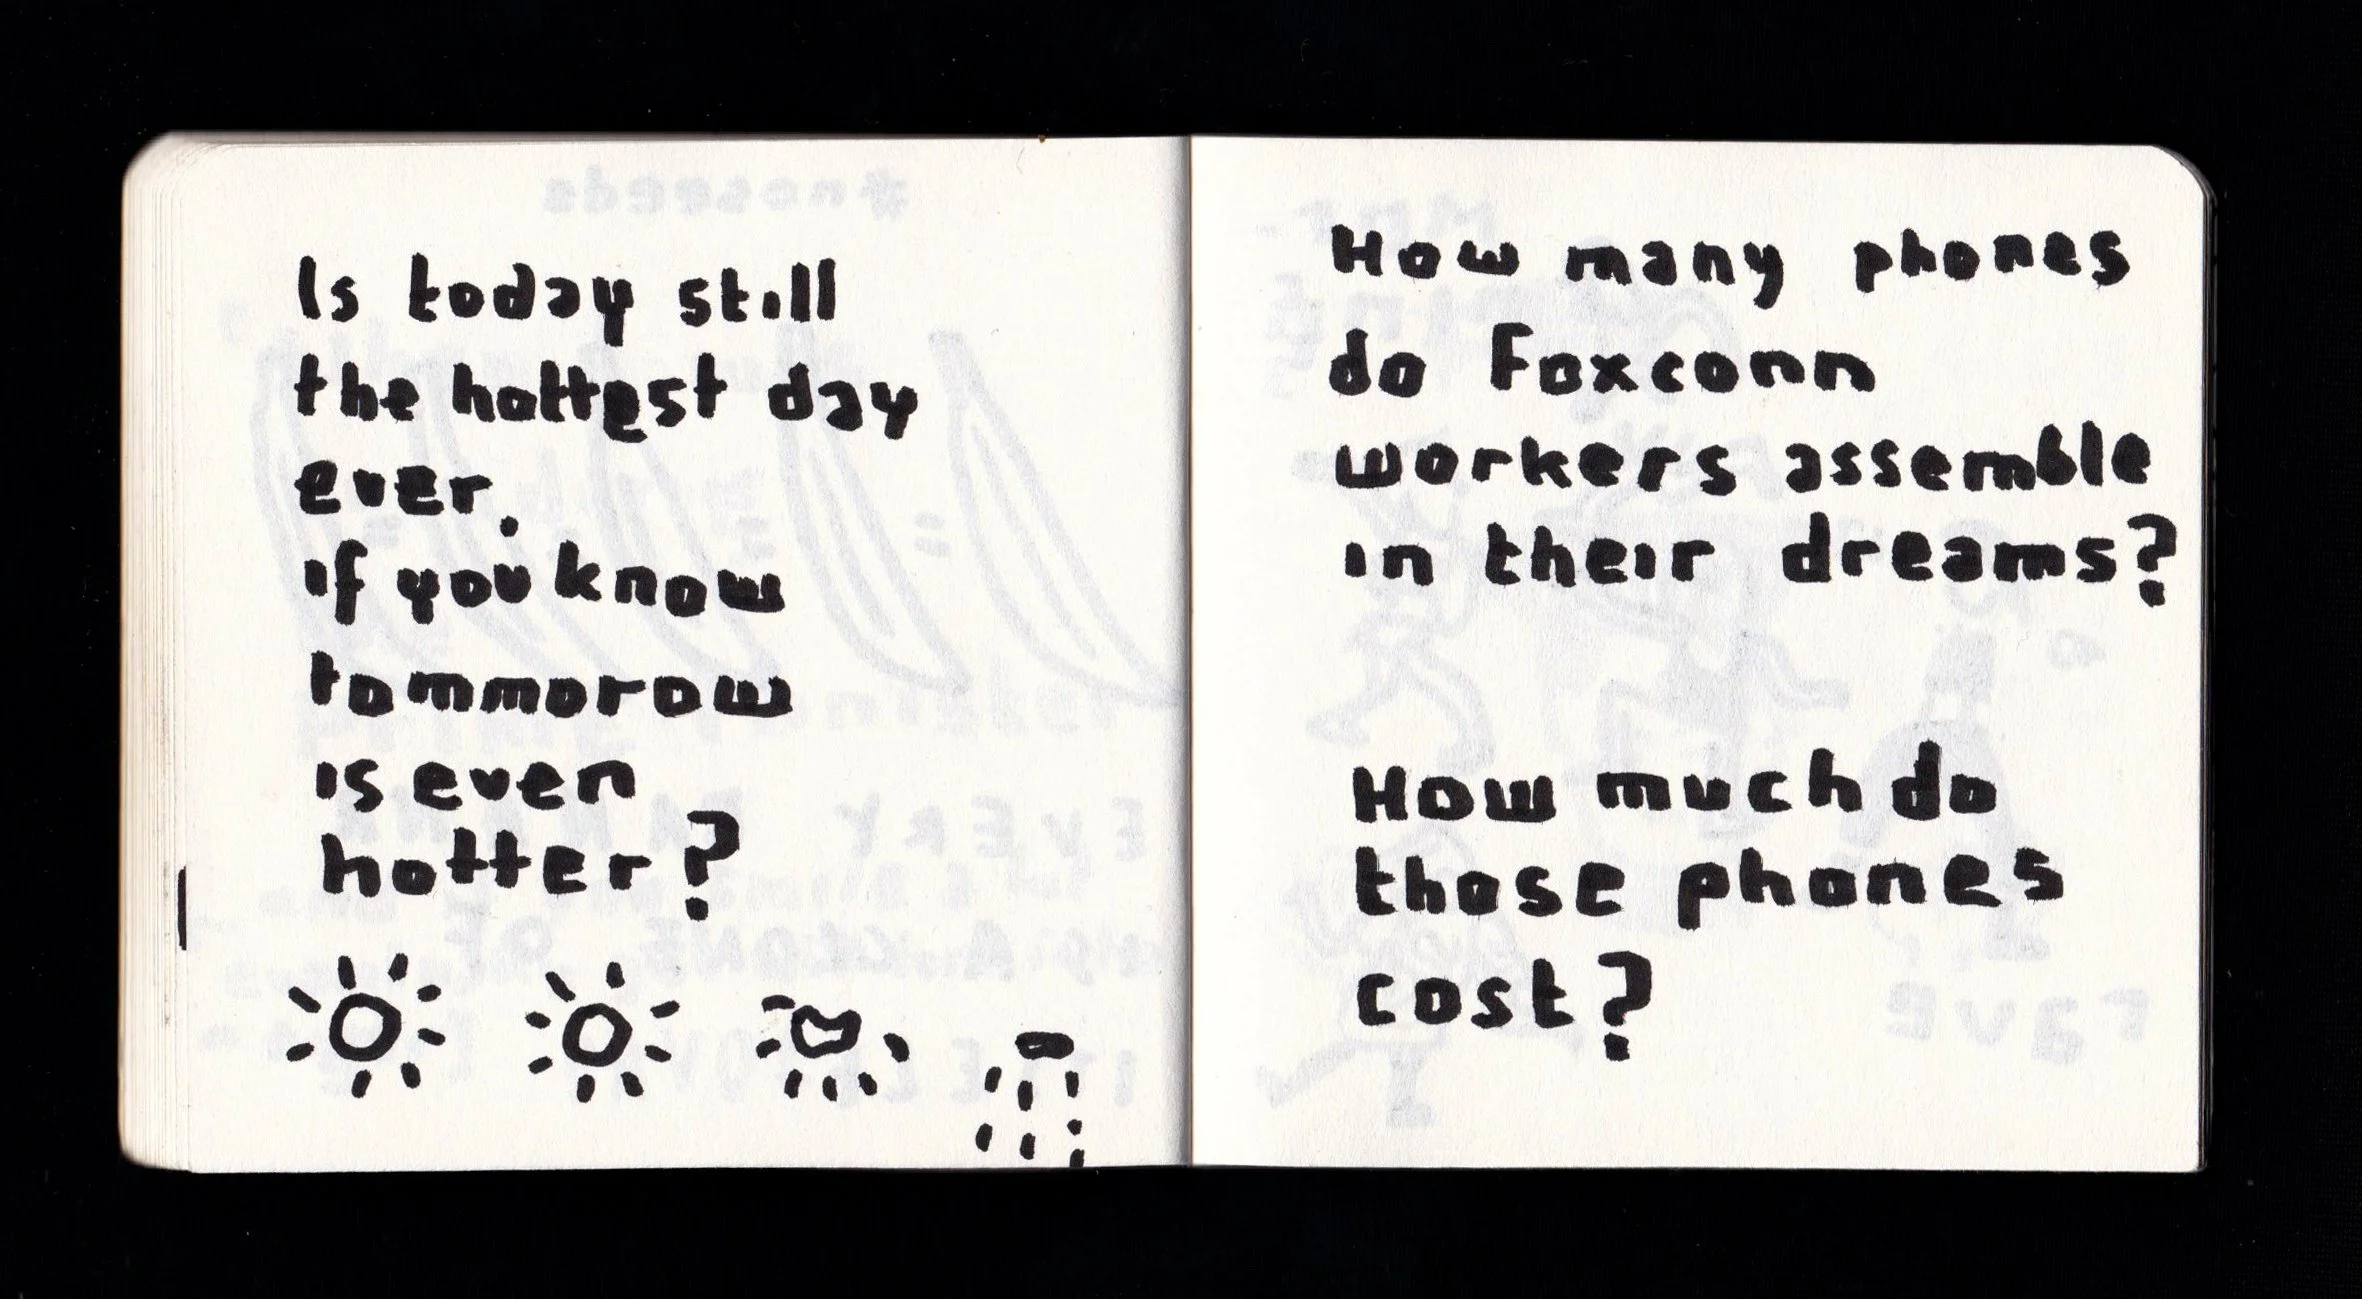 Is today still
the hottest day
ever.
if you know
tommorow
is even
hotter?
How many phones
do Foxconn
workers assemble
in their dreams?
How much do
those phones
cost?